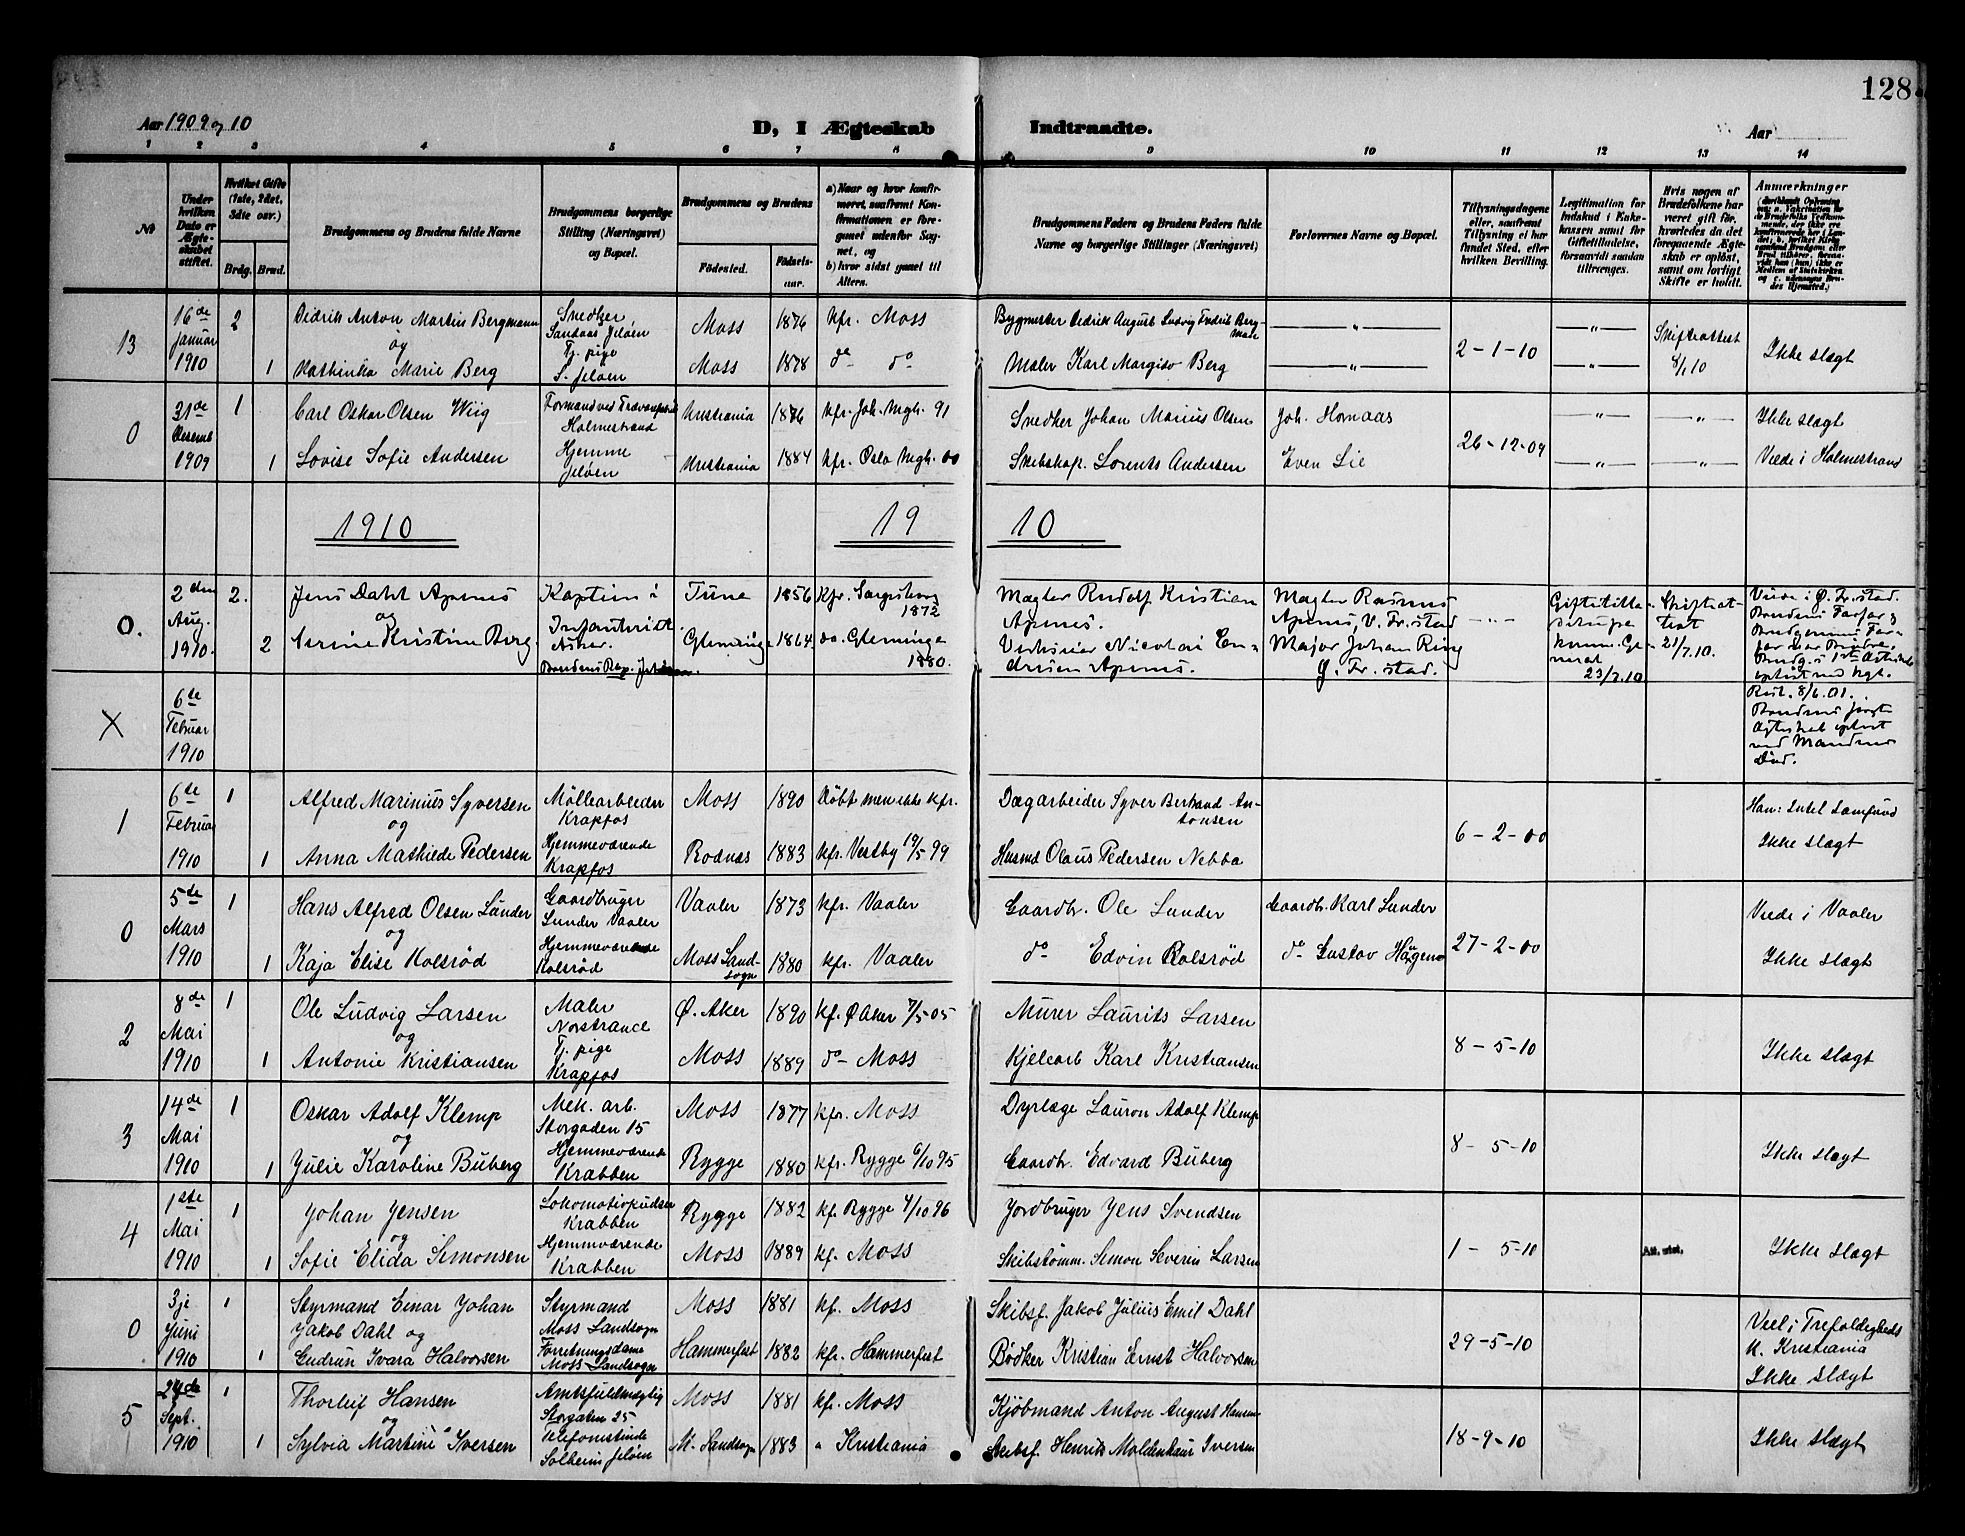 128
Aar 1909 og 10
D, I Ægteskab Indtraadte.
Aar
1 2 3 4 5 6 7 8 9 10 11 12 13 14
№
Under hvilken Dato er Ægteskabet stiftet.
Hvilket Gifte (1ste, 2det, 3dte osv.)
Brdg. Brud.
Brudgommens og Brudens fulde Navne
Brudgommens borgerlige Stilling (Næringsvei) og Bopæl.
Brudgommens og Brudens
Fødested. Fødselsaar.
a) Naar og hvor konfirmeret, saafremt Konfirmationen er foregaaet udenfor Sognet, og
b) hvor sidst gaaet til Alters.
Brudgommens Faders og Brudens Faders fulde Navne og borgerlige Stillinger (Næringsvei)
Forlovernes Navne og Bopæl.
Tillysningsdagene eller, saafremt Tillysning ei har fundet Sted, efter hvilken Bevilling.
Legitimation for Indskud i Enkekassen samt for Giftetilladelse, forsaavidt saadan tiltrænges.
Hvis nogen af Brudefolkene har været gift før, hvorledes da det foregaaende Ægteskab er opløst, samt om lovligt Skifte er holdt.
Anmærkninger
13 16de Januar 1910 2 Didrik Anton Martius Bergmann Snedker Sandaas Jeløen Moss 1876 kfr. Moss Bygmester Didrik August Ludvig Fredrik Bergmann —"— —"— Skifteattest
og
1 Mathinka Marie Berg Tj. pige S. Jeløen Moss 1878 do do Maler Karl Margido Berg —"— 2-1-10 —"— 8/1 10 Ikke slægt
0 31de Desemb 1909 1 Carl Oskar Olsen Wiig Holmestrand Kristiania 1876 kfr. Joh. Mgh. 91 Snedker Johan Marius Olsen Joh. Hornaas —"— —"— Ikke slægt
1 Lovise Sofie Andersen Hjemme Jeløen Kristiania 1884 kfr. Oslo Mgh. 00 Skibskap. Lorents Andersen Even Lie 26-12-09 —"— —"— Viede i Holmestrand
1910 19 10
0. 2den Aug. 1910. 2. Jens Dahl Apenes Kaptein i Tune 1856 kfr. Sarpsborg 1872 Mægler Rudolf Kristian Apenes. Mægler Rasmus Apenes, V. Fr.stad —"— 23/7.10 21/7.10. Viede i Ø. Fr.stad.
og
2 Nerine Kristine Berg. Glemminge 1864 do. Glemminge 1880. Major Johan Ring Ø. Fr.stad.
Rest. 8/6.01.
Brudens første Ægteskab opløst ved Mandens Død.
X 6te Februar 1910
1 6te Februar 1910 1 Alfred Marinius Syversen Møllearbeider Krapfos Moss 1890 Døbt men ikke kfr. Dagarbeider Syver Bertrand Antonsen
og
1 Anna Mathilde Pedersen Hjemmeværende Krapfos Rodnæs 1883 kfr. Vestby 19/5 99 Husmd Olaus Pedersen Nebba 6-2-00 Ikke slægt
0 5te Mars 1910 1 Hans Alfred Olsen Sunder Gaardbruger Sunder Vaaler Vaaler 1873 kfr. Vaaler Gaardbr. Ole Sunder Gaardbr. Karl Sunder Viede i Vaaler
og
1 Kaja Elise Kolsrød Hjemmeværende Kolsrød Moss Landsogn 1880 kfr. Vaaler do Edvin Kolsrød do Gustav 27-2-00 Ikke slægt
2 8de Mai 1910 1 Ole Ludvig Larsen Maler Norstrand Ø. Aker 1890 kf. Ø Aker 7/5 05 Murer Laurits Larsen
og
1 Antonie Kristiansen Tj. pige Krapfos Moss 1889 do Moss Kjelearb Karl Kristiansen 8-5-10 Ikke slægt
3 14de Mai 1910 1 Oskar Adolf Klemp Mek. arb. Storgaden 15 Moss 1877 kfr. Moss Dyrlæge Lauron Adolf Klemp
og
1 Julie Karoline Buberg Hjemmeværende Krabben Rygge 1880 kfr. Rygge 6/10 95 Gaardbr. Edvard Buberg 8-5-10 Ikke slægt
4 1ste Mai 1910 1 Johan Jensen Lokomotivpudser Krabben Rygge 1882 kf. Rygge 4/10 96 Jordbruger Jens Svendsen
og
1 Sofie Elida Simonsen Hjemmeværende Krabben Moss 1889 kf. Moss Skibstømm. Simon Severin Larsen 1-5-10 Att. utst. Ikke slægt
0 3je Juni 1910 1 Styrmand Einar Johan Jakob Dahl og Styrmand Moss Landsogn Moss 1881 kf. Moss Skibsf. Jakob Julius Emil Dahl Viet i Trefoldigheds K. Kristiania
1 Gudrun Ivara Halvorsen Forretningsdame Moss Landsogn Hammerfest 1882 kfr. Hammerfest Bødker Kristian Ernst Halvorsen 29-5-10 Ikke slægt
5 24de Sept. 1910 1 Thorleif Hansen Amtsfuldmægtig Storgaten 25 Moss 1881 kf. Moss Kjøbmand Anton August Hansen
og
1 Sylvia Martine Iversen Telefonistinde Solheim Jeløen M. Landsogn 1883 " Kristiania Skibsf. Henrik Moldenhaur Iversen 18-9-10 Ikke slægt